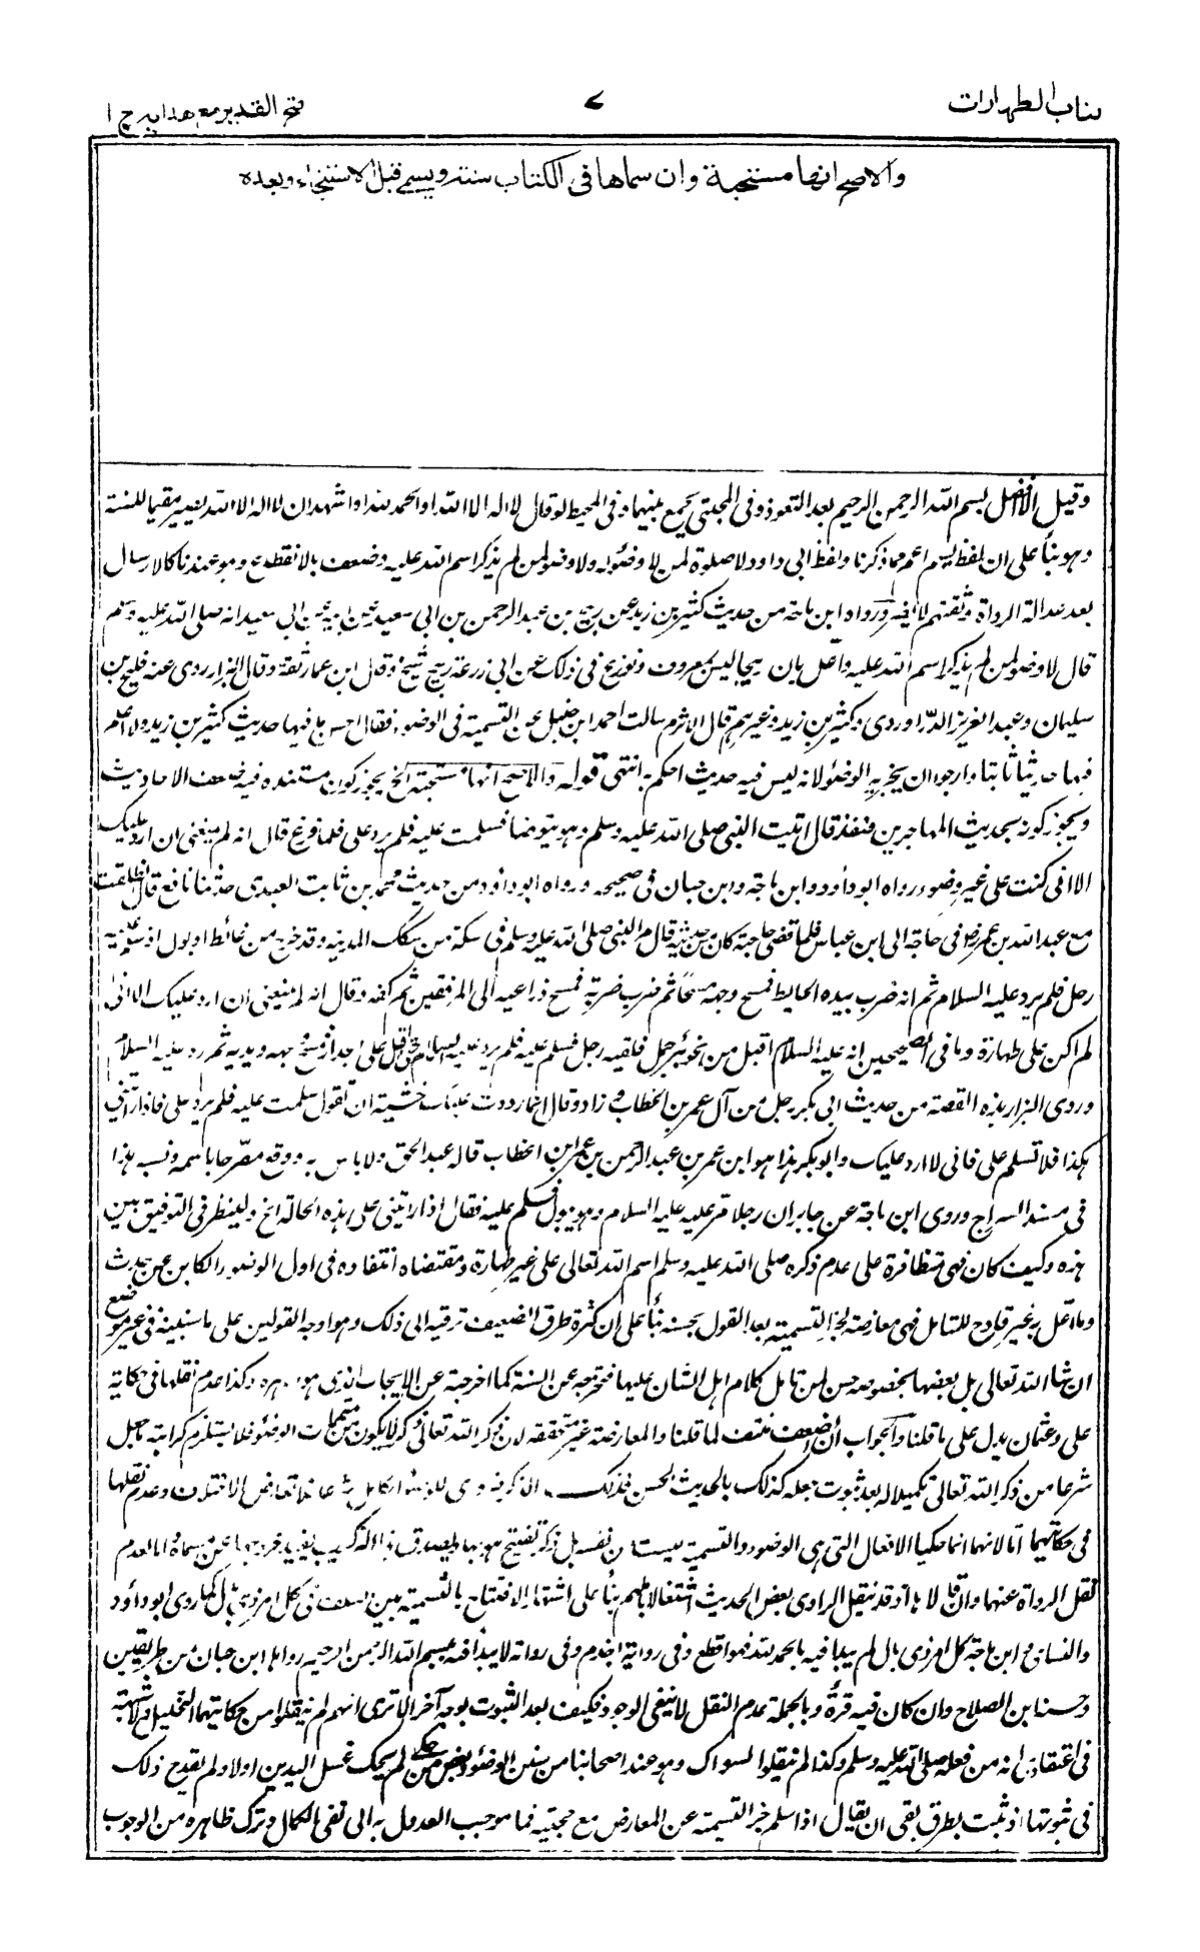 كتاب الطهارات
٧
فتح القدير مع هدايه ج ١
والاصح انها مستحبة وان سماها فى الكتاب سنة ويسمى قبل الاستنجاء وبعده
وقيل الافضل بسم الله الرحمن الرحيم بعد التعوذ وفى المجتبى يجمع بينهما وفى المحيط لو قال لا اله الا الله او الحمد لله او اشهد ان لا اله الا الله يصير مقيما للسنة
وهو بناء على ان لفظ يسم اعم مما ذكرنا ولفظ ابى داود لا صلوة لمن لا وضوء له ولا وضوء لمن لم يذكر اسم الله عليه وضعف بالانقطاع وهو عندنا كالارسال
بعد عدالة الرواة وثقتهم لا يضر ورواه ابن ماجة من حديث كثير بن زيد عن ربيح بن عبد الرحمن بن ابى سعيد عن ابيه عن ابى سعيد انه صلى الله عليه وسلم
قال لا وضوء لمن لم يذكر اسم الله عليه واعل بان ربيحا ليس بمعروف ونوزع فى ذلك عن ابى زرعة ربيح شيخ وقال ابن عمار ثقة وقال البزار روى عنه فليح بن
سليمان وعبد العزيز الدراوردى وكثير بن زيد وغيرهم قال الاثرم سالت احمد ابن حنبل عن التسمية فى الوضوء فقال احسن ما فيها حديث كثير بن زيد ولا اعلم
فيها حديثا ثابتا وارجو ان يجزيه الوضوء لانه ليس فيه حديث احكم به انتهى قوله والاصح انها مستحبة الخ يجوز كون مستنده فيه ضعف الاحاديث
ويجوز كونه بحديث المهاجر بن قنفذ قال اتيت النبى صلى الله عليه وسلم وهو يتوضا فسلمت عليه فلم يرد على فلما فرغ قال انه لم يمنعنى ان ارد عليك
الا انى كنت على غير وضوء رواه ابو داود وابن ماجة وابن حبان فى صحيحه ورواه ابو داود من حديث محمد بن ثابت العبدى حدثنا نافع قال انطلقت
مع عبد الله بن عمر رضـ فى حاجة الى ابن عباس فلما قضى حاجته كان من حديثه قال مر النبى صلى الله عليه وسلم فى سكة من سكك المدينة وقد خرج من غائط او بول اذ سلم عليه
رجل فلم يرد عليه السلام ثم انه ضرب بيده الحايط فمسح وجهه مسحا ثم ضرب ضربة فمسح ذراعيه الى المرفقين ثم كفه وقال انه لم يمنعنى ان ارد عليك الا انى
لم اكن على طهارة وما فى الصحيحين انه عليه السلام اقبل من نحو بئر جمل فلقيه رجل فسلم عليه فلم يرد عليه السلام حتى اقبل على الجدار فمسح وجهه ويديه ثم رد عليه السلام
وروى البزار هذه القصة من حديث ابى بكر رجل من آل عمر بن الخطاب وزاد وقال انما رددت عليك خشية ان تقول سلمت عليه فلم يرد على فاذا رايتنى
هكذا فلا تسلم على فانى لا ارد عليك وابو بكر هذا هو ابن عمر بن عبد الرحمن بن عمر ابن الخطاب قاله عبد الحق ولا باس به ووقع مصرحا باسمه ونسبه هذا
فى مسند السراج وروى ابن ماجة عن جابر ان رجلا مر عليه عليه السلام وهو يبول فسلم عليه فقال اذا رايتنى على هذه الحالة الخ ولينظر فى التوفيق بين
هذه وكيف كان فهى متظافرة على عدم ذكره صلى الله عليه وسلم اسم الله تعالى على غير طهارة ومقتضاه انتفاؤه فى اول الوضوء الكاين عن حدث
وما اعل به غير قادح للتسامل فهى معارضة لخبر التسمية بعد القول بحسنه بناء على ان كثرة طرق الضعيف ترقيه الى ذلك وهو اوجه القولين على ما سنبينه فى غير موضع
ان شاء الله تعالى بل بعضها بخصوصه حسن لمن تامل كلام اهل الشان عليها فتخرجه عن السنة كما اخرجته عن الايجاب الذى هو ظاهره وكذا عدم نقلها فى حكاية
على وعثمان يدل على ما قلنا والجواب ان الضعف منتف لما قلنا والمعارضة غير متحققة لان ذكر الله تعالى لا يكون من متممات الوضوء فلا يستلزم كراهة ما جعل
شرعا من ذكر الله تعالى تكميلا له بعد ثبوت جعله كذلك بالحديث الحسن فذلك الذكر ضرورى للوضوء الكامل شرعا فلا تعارض الاختلاف وعدم نقلها
فى حكايتهما اما لانهما انما حكيا الافعال التى هى الوضوء والتسمية ليست من نفسه بل ذكر تفتتح هو بها
نقل الرواة عنهما وان قالاها اذ قد ينقل الراوى بعض الحديث اشتغالا بالمهم بناء على اشتهار الافتتاح بالتسمية بين السلف فى كل امر ذى بال كما روى ابو داود
والنسائى وابن ماجة كل امر ذى بال لم يبدا فيه بالحمد لله فهو اقطع وفى رواية اجذم وفى رواية لا يبدا فيه ببسم الله الرحمن الرحيم رواها ابن حبان من طريقين
وحسنه ابن الصلاح وان كان فيه قرة وبالجملة عدم النقل لا ينفى الوجود فكيف بعد الثبوت بوجه آخر الا ترى انهم لم ينقلوا من حكايتهما التخليل ولا شبهة
فى اعتقادى انه من فعله صلى الله عليه وسلم وكذا لم ينقلوا السواك وهو عند اصحابنا من سنن الوضوء وبعض من حكى لم يحك غسل اليدين اولا ولم يقدح ذلك
فى ثبوتها اذ ثبت بطرق بقى ان يقال اذا سلم خبر التسمية عن المعارض مع حجيته فما موجب العدول به الى نفى الكمال وترك ظاهره من الوجوب